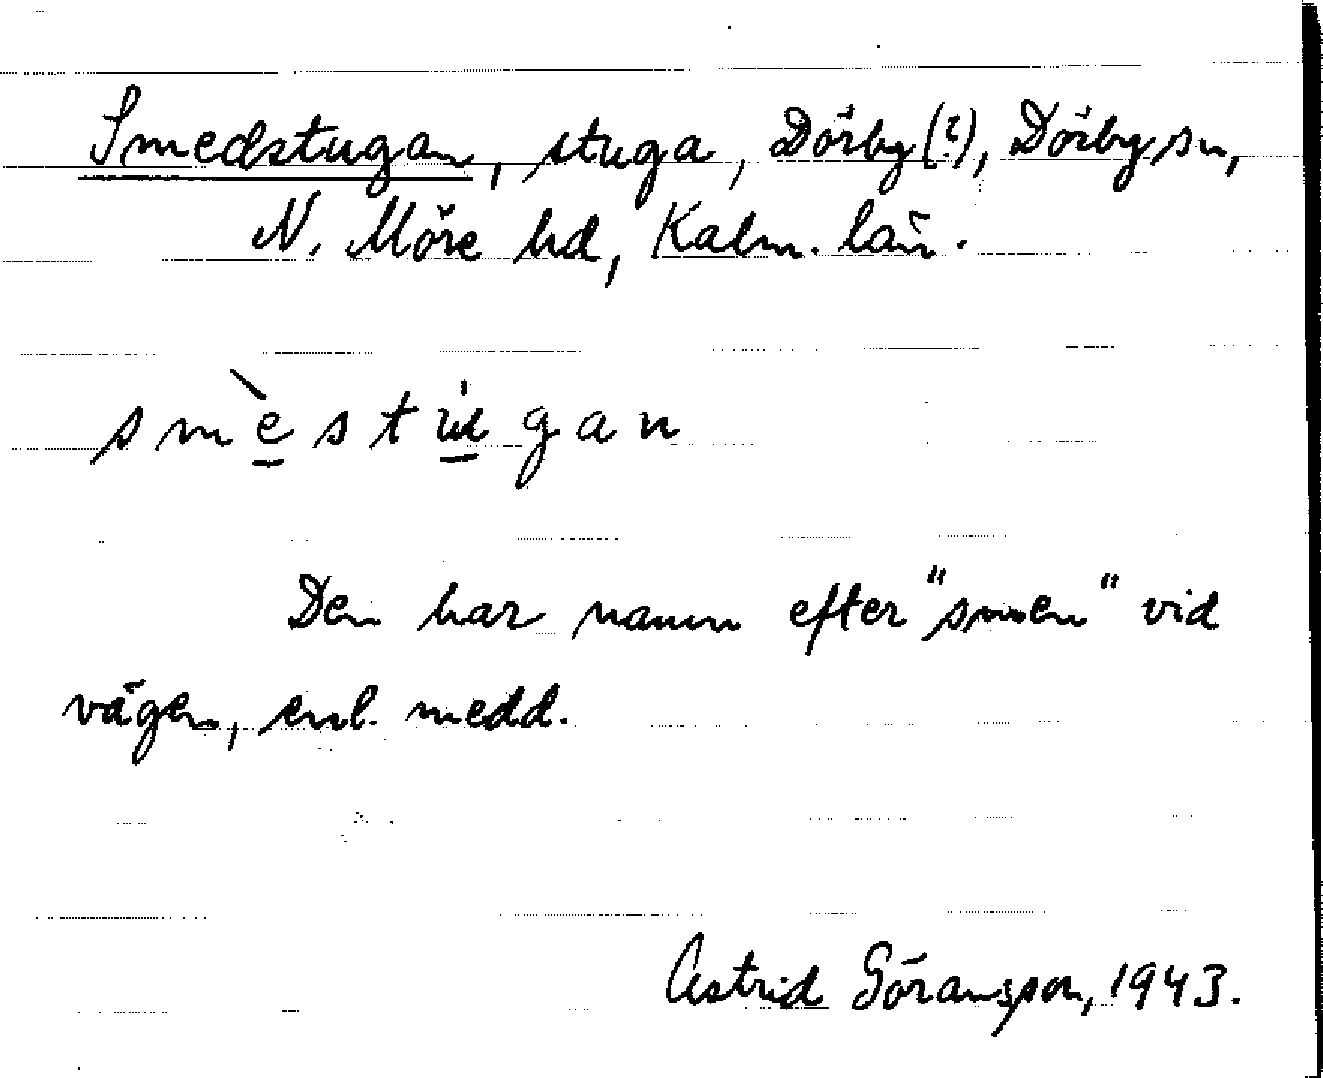 Smedstugan, stuga, Dörby(?), Dörby sn,
N. Möre hd, Kalm. län.
smè̱stu̱̍gan
Den har namn efter "smen" vid
vägen, enl. medd.
Astrid Göransson, 1943.